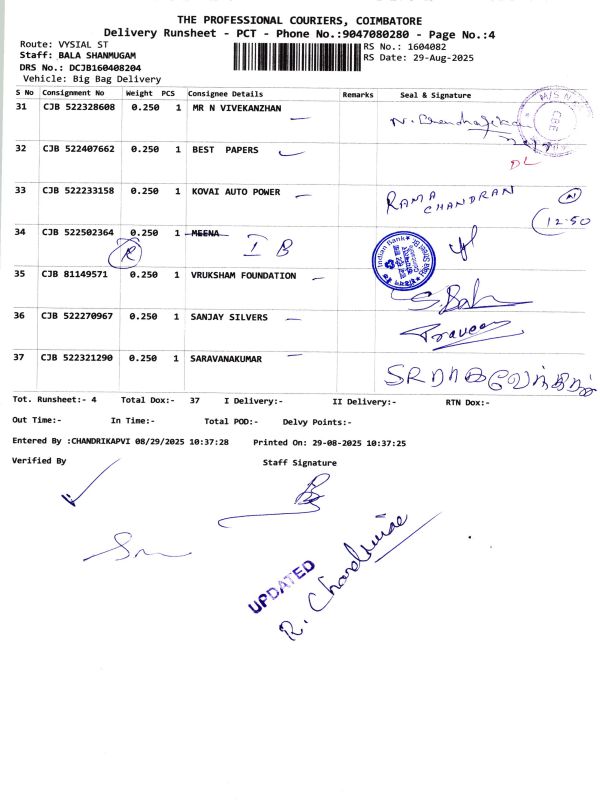 THE PROFESSIONAL COURIERS, COIMBATORE
Delivery Runsheet - PCT - Phone No.:9047080280 - Page No.:4
Route: VYSIAL ST
Staff: BALA SHANMUGAM
DRS No.: DCJB160408204
Vehicle: Big Bag Delivery
RS No.: 1604082
RS Date: 29-Aug-2025
S No Consignment No Weight PCS Consignee Details Remarks Seal & Signature
31 CJB 522328608 0.250 1 MR N VIVEKANZHAN
M/S N
CBE
32 CJB 522407662 0.250 1 BEST PAPERS
DL
33 CJB 522233158 0.250 1 KOVAI AUTO POWER RAMA CHANDRAN
12.50
34 CJB 522502364 0.250 1 MEENA I B
R
Indian Bank
35 CJB 81149571 0.250 1 VRUKSHAM FOUNDATION
36 CJB 522270967 0.250 1 SANJAY SILVERS Praveen
37 CJB 522321290 0.250 1 SARAVANAKUMAR
Tot. Runsheet:- 4 Total Dox:- 37 I Delivery:- II Delivery:- RTN Dox:-
Out Time:- In Time:- Total POD:- Delvy Points:-
Entered By :CHANDRIKAPVI 08/29/2025 10:37:28 Printed On: 29-08-2025 10:37:25
Verified By Staff Signature
UPDATED